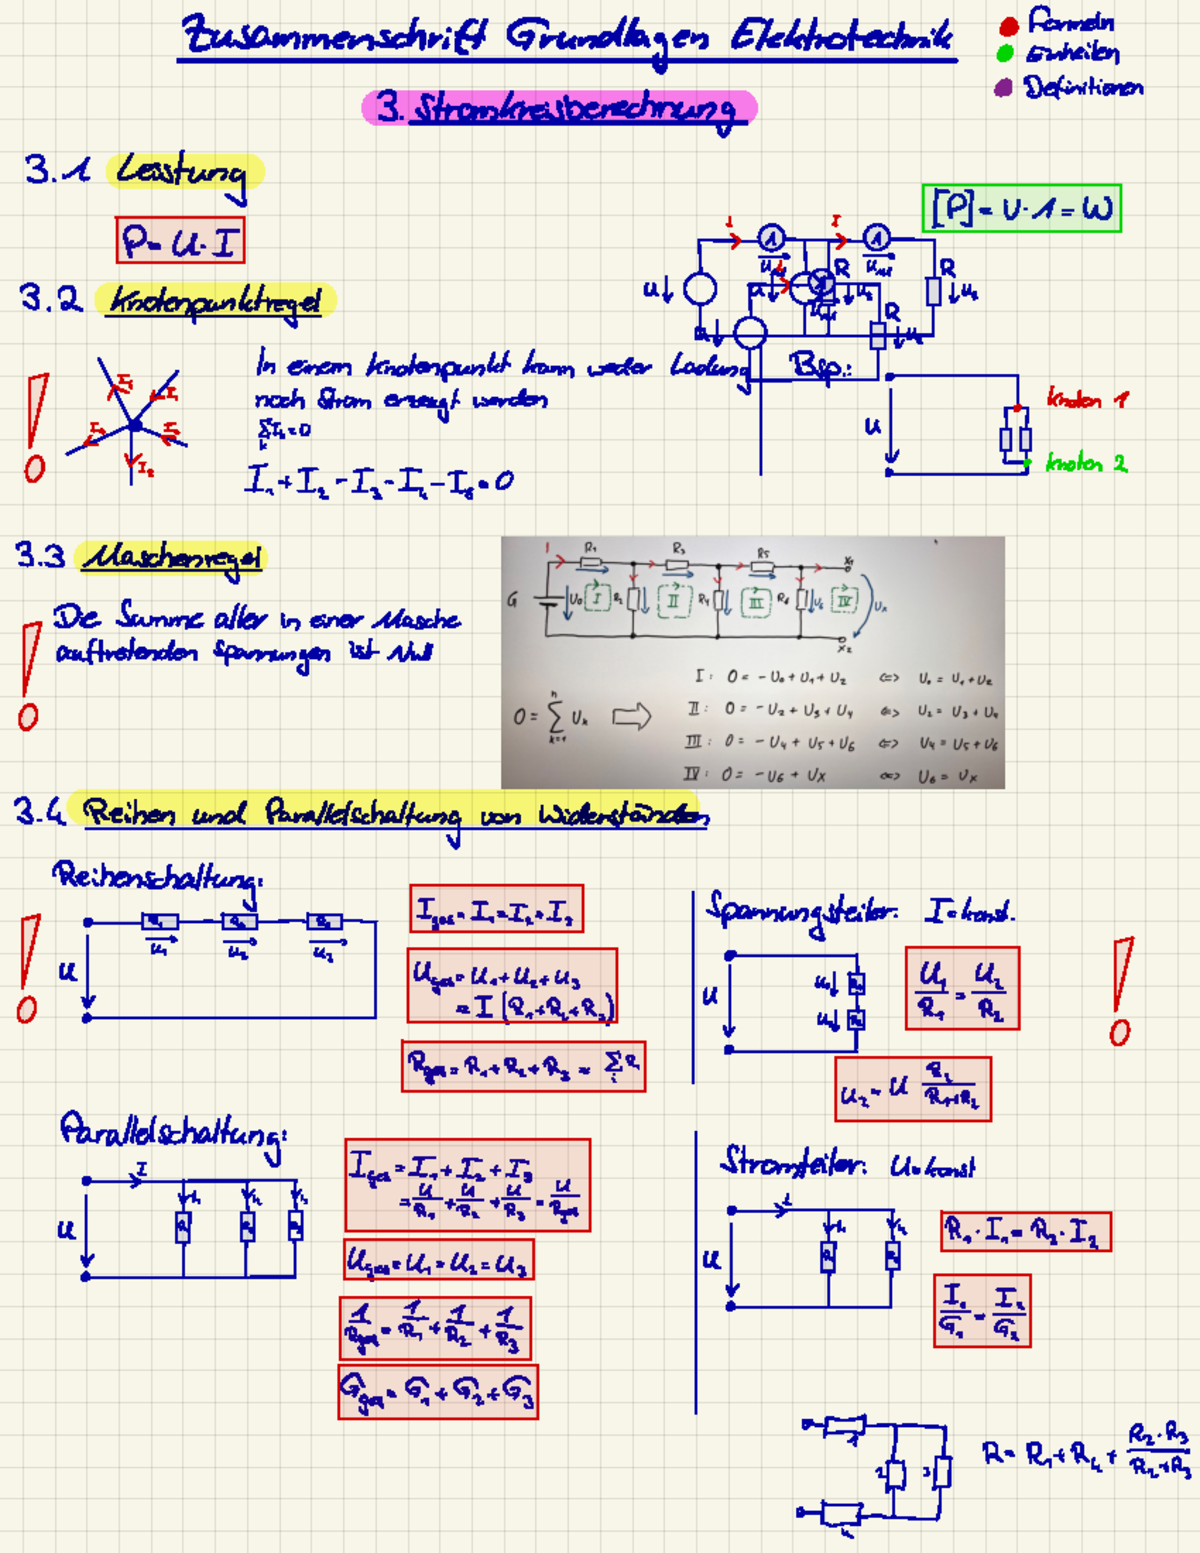 Zusammenschrift Grundlagen Elektrotechnik
Formeln
Einheiten
Definitionen
3. Stromkreisberechnung
3.1 Leistung
[P] = V · A = W
P = U · I
3.2 Knotenpunktregel
In einem Knotenpunkt kann weder Ladung
noch Strom erzeugt werden
I₁ + I₂ - I₃ - I₄ - I₅ = 0
Bsp.:
U
Knoten 1
Knoten 2
3.3 Maschenregel
Die Summe aller in einer Masche
auftretenden Spannungen ist Null
R₁ R₃ R₅ X₁
G U₀ I II R₄ III R₆ U₆ IV Uₓ
X₂
I: 0 = - U₀ + U₁ + U₂ <=> U₀ = U₁ + U₂
0 = Σ Uₖ
n
k=1
II: 0 = - U₂ + U₃ + U₄ <=> U₂ = U₃ + U₄
III: 0 = - U₄ + U₅ + U₆ <=> U₄ = U₅ + U₆
IV: 0 = - U₆ + Uₓ <=> U₆ = Uₓ
3.4 Reihen und Parallelschaltung von Widerständen
Reihenschaltung:
U
U₁ U₂ U₃
I_ges = I₁ = I₂ = I₃
U_ges = U₁ + U₂ + U₃
= I (R₁ + R₂ + R₃)
R_ges = R₁ + R₂ + R₃ = Σ Rᵢ
Spannungsteiler: I = konst.
U
U₁/R₁ = U₂/R₂
U₂ = U R₂/(R₁+R₂)
Parallelschaltung:
I
U
I_ges = I₁ + I₂ + I₃
= U/R₁ + U/R₂ + U/R₃ = U/R_ges
U_ges = U₁ = U₂ = U₃
1/R_ges = 1/R₁ + 1/R₂ + 1/R₃
G_ges = G₁ + G₂ + G₃
Stromteiler: U = konst
U
R₁ · I₁ = R₂ · I₂
I₁/G₁ = I₂/G₂
1
2 3
4
R = R₁ + R₄ + (R₂ · R₃)/(R₂ + R₃)